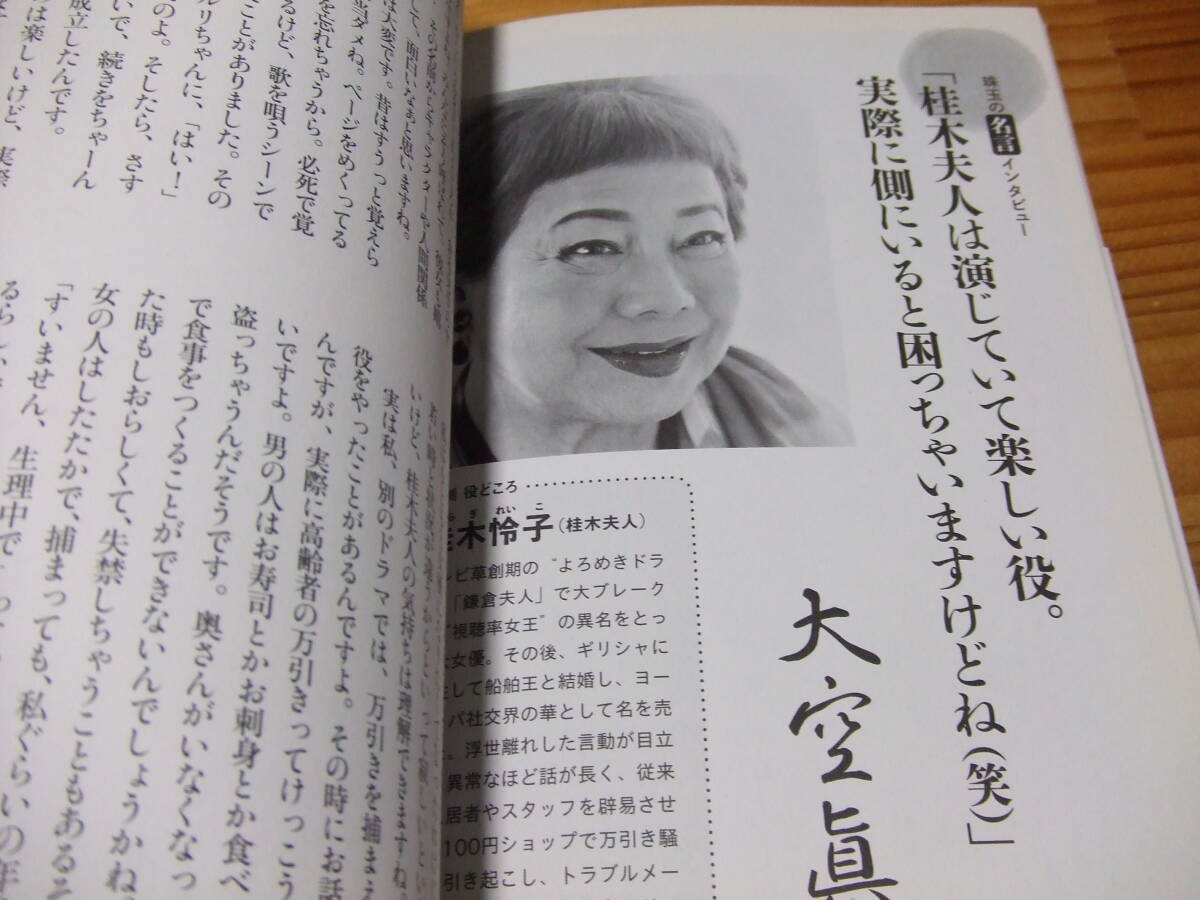 珠玉の名言インタビュー
「桂木夫人は演じていて楽しい役。
実際に側にいると困っちゃいますけどね(笑)」
大空眞
役どころ
木怜子(桂木夫人)
れい こ
レビ草創期の“よろめきドラ
「鎌倉夫人」で大ブレーク
“視聴率女王”の異名をとっ
女優。その後、ギリシャに
して船舶王と結婚し、ヨー
パ社交界の華として名を売
。浮世離れした言動が目立
異常なほど話が長く、従来
居者やスタッフを辟易させ
100円ショップで万引き騒
引き起こし、トラブルメー
して、面白いなあと思いますね。
は大変です。昔はすうっと覚えら
ダメね。ページをめくってる
を忘れちゃうから。必死で覚
るけど、歌を唄うシーンで
ことがありました。その
ルリちゃんに、「はい!」
のよ。そしたら、さす
いで、続きをちゃーん
成立したんです。
は楽しいけど、実際
いけど、桂木夫人の気持ちは理解できますね。
実は私、別のドラマでは、万引きを捕まえ
役をやったことがあるんですよ。その時にお話
んですが、実際に高齢者の万引きってけっこう
いですよ。男の人はお寿司とかお刺身とか食べ
盗っちゃうんだそうです。奥さんがいなくなっ
で食事をつくることができないんでしょうかね
た時もしおらしくて、失禁しちゃうこともあるそ
女の人はしたたかで、捕まっても、私ぐらいの年
「すいません、生理中で